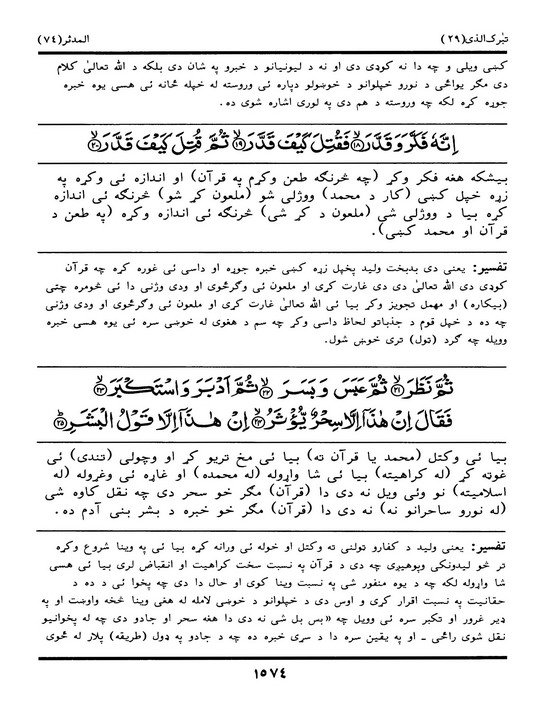 تبٰرک الذی(٢٩) المدثر(٧٤)
کښی ویلی و چه دا نه کوډی دی او نه د لیونیانو د خبرو په شان دی بلکه د الله تعالیٰ کلام
دی مگر یواځی د نورو خپلوانو د خوښولو دپاره ئی وروسته له خپله ځانه ئی هسی یوه خبره
جوړه کړه لکه چه وروسته د هم دی په لوری اشاره شوی ده.
اِنَّهٗ فَكَّرَ وَ قَدَّرَ ۙ﴿١٨﴾ فَقُتِلَ كَيْفَ قَدَّرَ ۙ﴿١٩﴾ ثُمَّ قُتِلَ كَيْفَ قَدَّرَ ۙ﴿٢٠﴾
بیشکه هغه فکر وکړ (چه څرنگه طعن وکړم په قرآن) او اندازه ئی وکړه په
زړه خپل کښی (کار د محمد) ووژلی شو (ملعون کړ شو) څرنگه ئی اندازه
کړه بیا د ووژلی شی (ملعون د کړ شی) څرنگه ئی اندازه وکړه (په طعن د
قرآن او محمد کښی).
تفسیر: یعنی دی بدبخت ولید پخپل زړه کښی خبره جوړه او داسی ئی غوره کړه چه قرآن
کوډی دی الله تعالیٰ دی دی غارت کړی او ملعون ئی وگرځوی او ودی وژنی دا ئی څومره چتی
(بیکاره) او مهمل تجویز وکړ بیا ئی الله تعالیٰ غارت کړی او ملعون ئی وگرځوی او ودی وژنی
چه ده د خپل قوم د جذباتو لحاظ داسی وکړ چه سم د هغوی له خوښی سره ئی یوه هسی خبره
وویله چه گرد (تول) تری خوښ شول.
ثُمَّ نَظَرَ ۙ﴿٢١﴾ ثُمَّ عَبَسَ وَ بَسَرَ ۙ﴿٢٢﴾ ثُمَّ اَدْبَرَ وَ اسْتَكْبَرَ ۙ﴿٢٣﴾
فَقَالَ اِنْ هٰذَآ اِلَّا سِحْرٌ يُّؤْثَرُ ۙ﴿٢٤﴾ اِنْ هٰذَآ اِلَّا قَوْلُ الْبَشَرِ ﴿٢٥﴾
بیا ئی وکتل (محمد یا قرآن ته) بیا ئی مخ تریو کړ او وچولی (تندی) ئی
غوټه کړ (له کراهیته) بیا ئی شا واړوله (له محمده) او غاړه ئی وغړوله (له
اسلامیته) نو وئی ویل نه دی دا (قرآن) مگر خو سحر دی چه نقل کاوه شی
(له نورو ساحرانو نه) نه دی دا (قرآن) مگر خو خبره د بشر بنی آدم ده.
تفسیر: یعنی ولید د کفارو تولنی ته وکتل او خوله ئی ورانه کړه بیا ئی په وینا شروع وکړه
تر څو لیدونکی وپوهیږی چه دی د قرآن په نسبت سخت کراهیت او انقباض لری بیا ئی هسی
شا واړوله لکه چه د یوه منفور شی په نسبت وینا کوی او حال دا دی چه پخوا ئی د ده د
حقانیت په نسبت اقرار کړی و اوس دی د خپلوانو د خوښی لامله له هغی وینا څخه واوښت او په
ډیر غرور او تکبر سره ئی وویل چه «بس بل شی نه دی دا هغه سحر او جادو دی چه له پخوانیو
نقل شوی راځی ـ او په یقین سره دا د سړی خبره ده چه د جادو په ډول (طریقه) پلار له ځوی
١٥٧٤